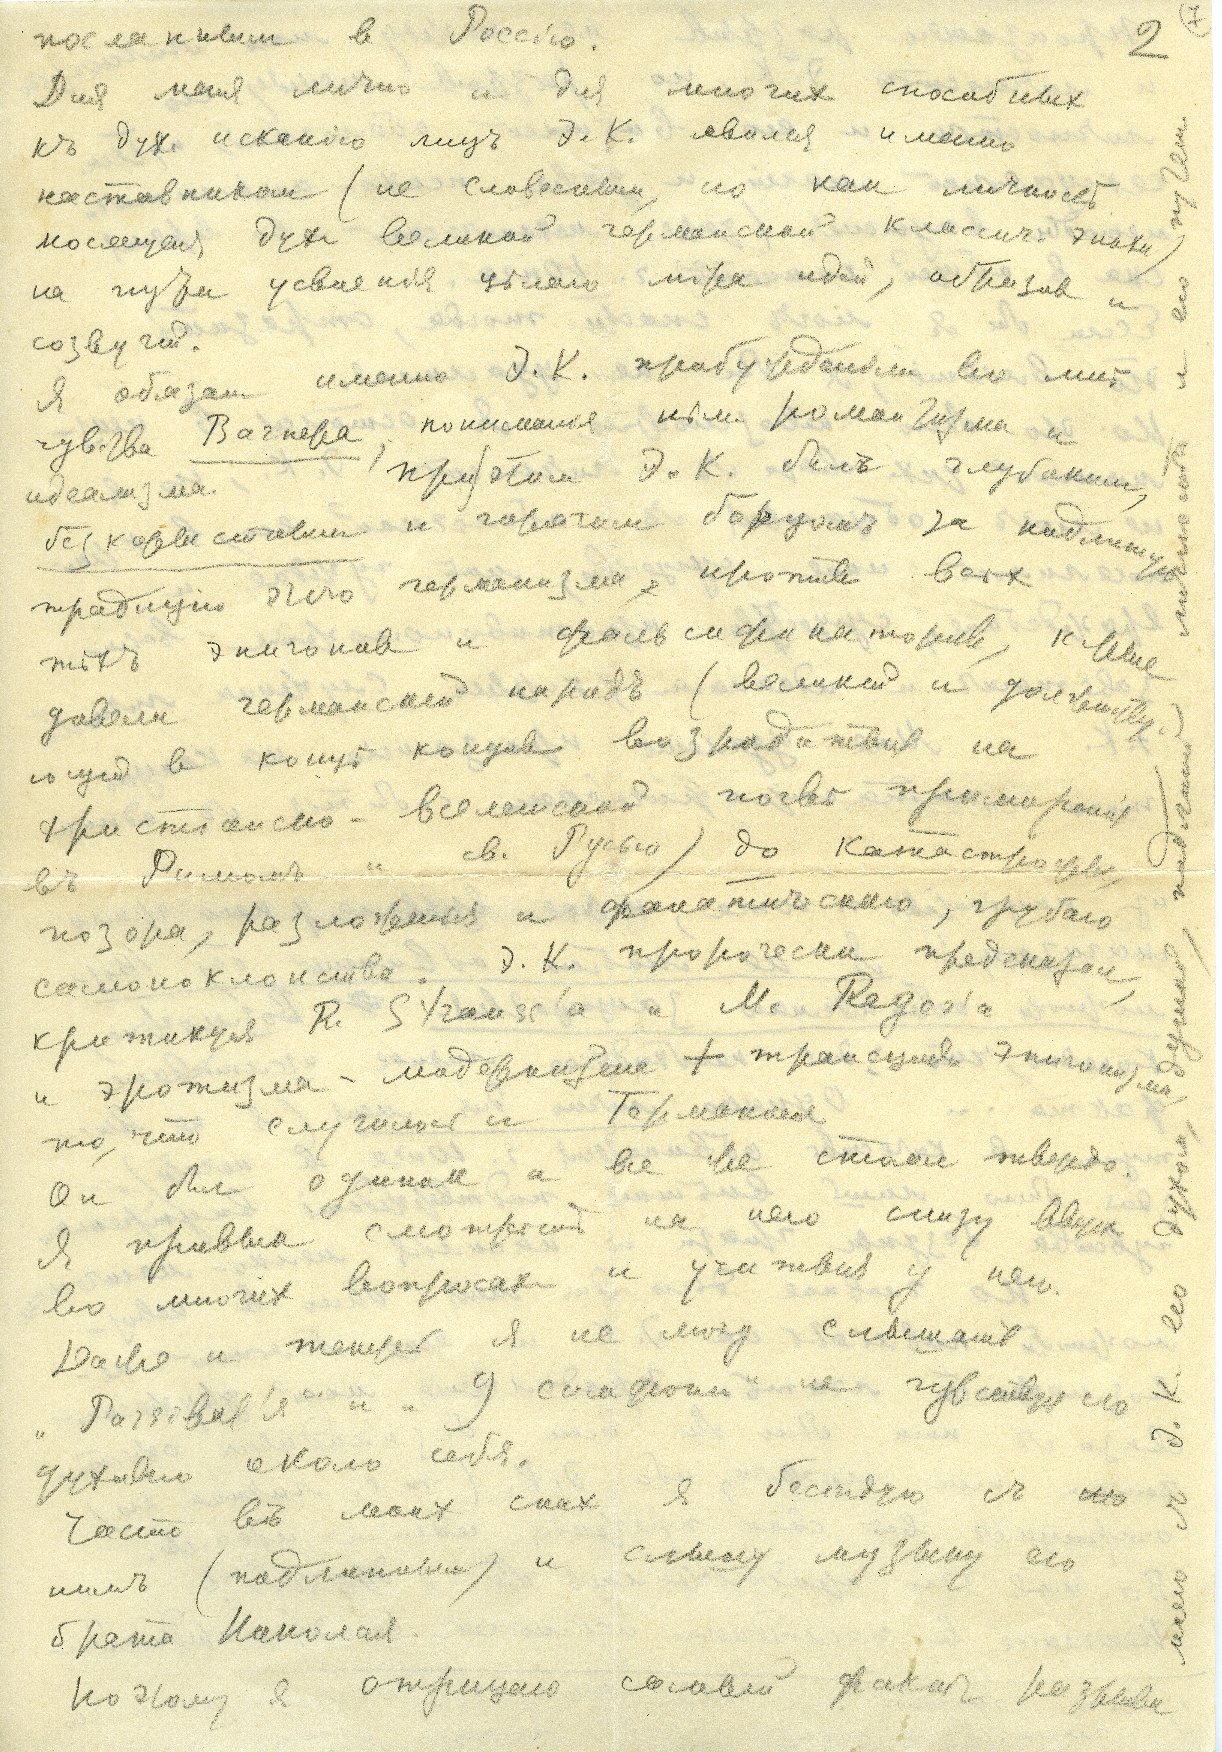 2
7
посланным в Россію.
Для меня лично и для многих способных
къ дух. исканію лицъ Э.К. явился именно
наставником (не словесным, но как личность
носящая духъ великой германской классич. эпохи)
на пути усвоенія цѣлаго міра идей, образов и
созвучій.
Я обязан именно Э.К. пробужденіем во мнѣ
чувства Вагнера, пониманія нѣм. романтизма и
идеализма. При этом Э.К. былъ глубоким,
безкорыстным и горячим борцомъ за подлинную
традицію этого германизма, против всѣх
тѣхъ эпигонов и фальсификаторов, которые
довели германскій народъ (великій и долженству-
ющій в концѣ концов возродиться на
христіанско-вселенской почвѣ примиренія
съ Римомъ и св. Русью) до катастрофы,
позора, разложенія и фанатическаго, грубаго
самопоклонства. Э.К. пророчески предсказал,
критикуя R. Strauss'a и M. Reger'a
и эротизма-модернизма + трансценд. эпигонизма,
то, что случилось с Германіей
Он был одинок и все же стоял твердо.
Я привык смотрѣть на него снизу вверх
во многих вопросах и учиться у него.
Даже и теперь я не могу слышать
„Parsival'я" и „9 симфоніи" не чувствуя его
духовно около себя.
Часто въ моих снах я бесѣдую съ
нимъ (подлинным) и слышу музыку его
брата Николая.
Поэтому я отрицаю самый фактъ разрыва
моего съ Э.К. его духом, душою, подлинной личностью и его путем